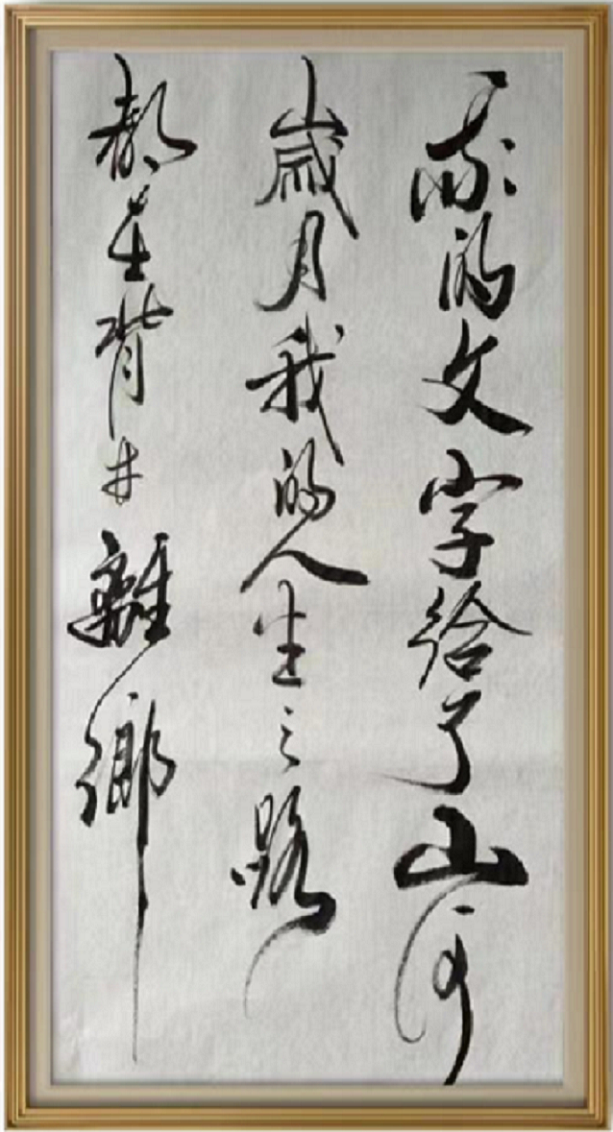 我的文字给了山河
歲月我的人生之路
都在背井離鄉